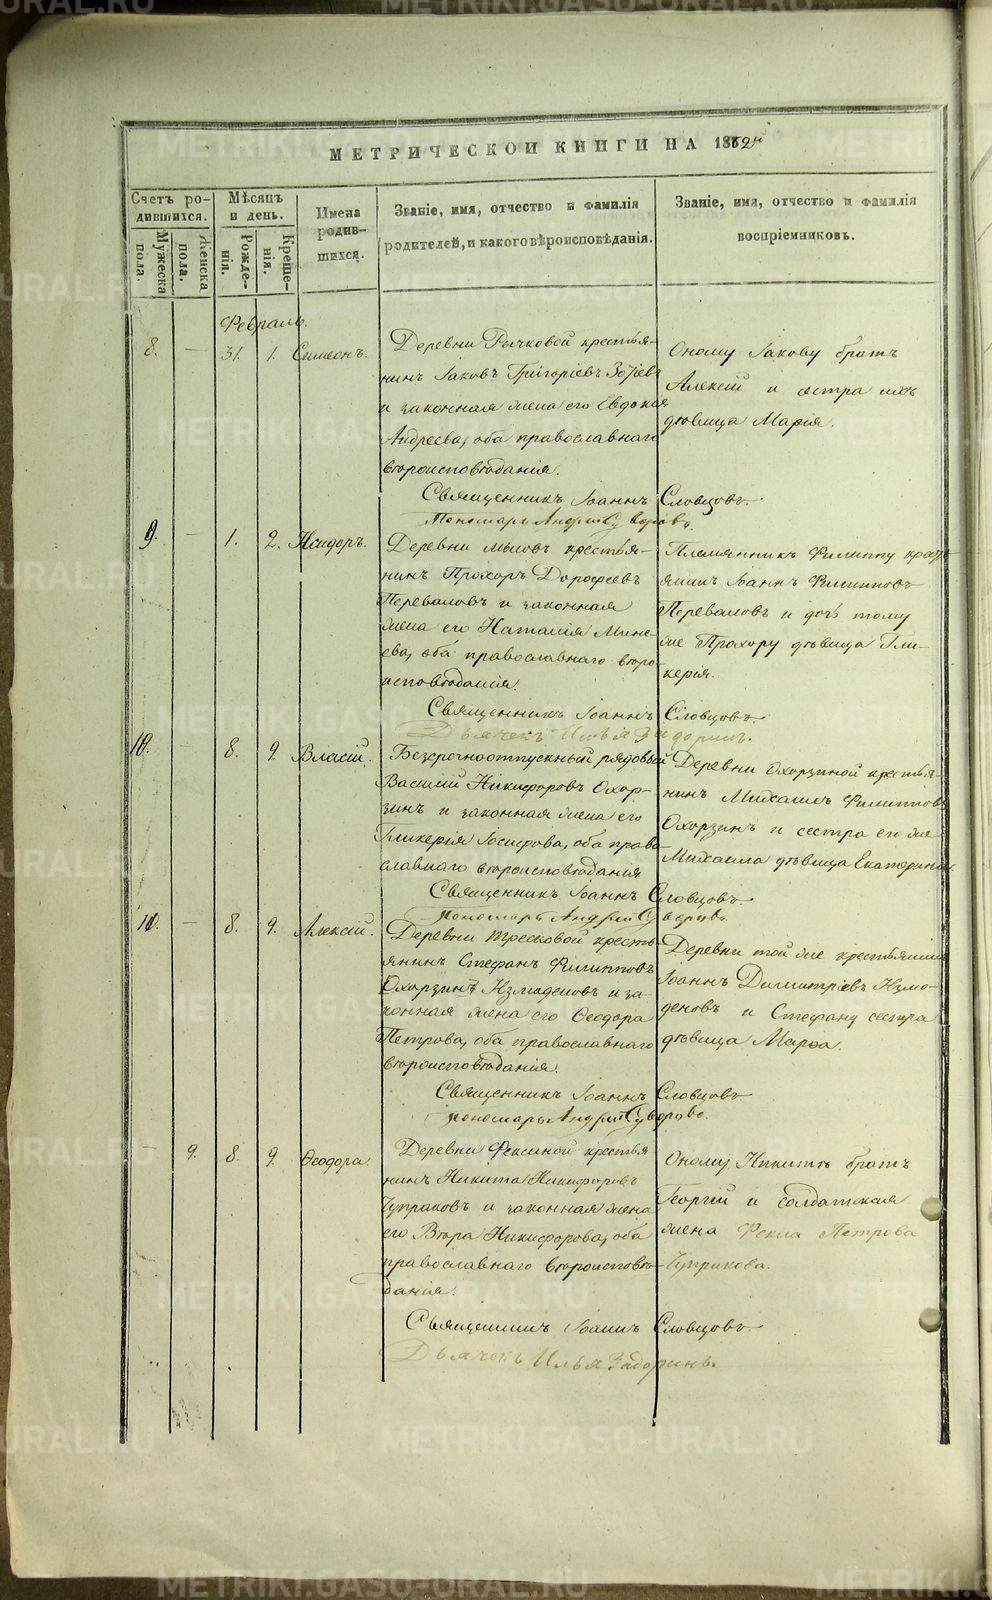 МЕТРИЧЕСКОЙ КНИГИ НА 1862й
Счетъ родившихся.
Мѣсяцъ и день.
Имена родившихся.
Званіе, имя, отчество и фамилія родителей, и какого вѣроисповѣданія.
Званіе, имя, отчество и фамилія воспріемниковъ.
Мужеска пола.
Женска пола.
Рожденія.
Крещенія.
Февраль.
8. — 31. 1. Симеонъ.
Деревни Рычковой крестья-
нинъ Іаковъ Григоріевъ
и законная жена его Евдокія
Андреева, оба православнаго
вѣроисповѣданія.
Оному Іакову братъ
Алексій и сестра ихъ
дѣвица Марія.
Священникъ Іоаннъ Словцовъ.
Пономарь Андрей Суворовъ.
9. — 1. 2. Исидоръ.
Деревни Мысовъ крестья-
нинъ Прохоръ Дорофеевъ
Переваловъ и законная
жена его Наталія Мине-
ева, оба православнаго вѣро-
исповѣданія.
Племянникъ Филиппу крестья-
янинъ Іоаннъ Филипповъ
Переваловъ и дочь тому
же Прохору дѣвица Гли-
керія.
Священникъ Іоаннъ Словцовъ.
Дьячекъ Илья Задоринъ.
10. 8. 9. Власій.
Безсрочноотпускный рядовый
Василій Никифоровъ Охор-
зинъ и законная жена его
Гликерія Іосифова, оба право-
славнаго вѣроисповѣданія
Деревни Охорзиной крестья-
нинъ Михаилъ Филипповъ
Охорзинъ и сестра его же
Михаила дѣвица Екатерина.
Священникъ Іоаннъ Словцовъ.
Пономарь Андрей Суворовъ.
11. — 8. 9. Алексій.
Деревни Тресковой кресть-
янинъ Стефанъ Филипповъ
Охорзинъ Измоденовъ и за-
конная жена его Ѳеодора
Петрова, оба православнаго
вѣроисповѣданія.
Деревни той же крестьянинъ
Іоаннъ Димитріевъ Измо-
деновъ и Стефану сестра
дѣвица Марѳа.
Священникъ Іоаннъ Словцовъ
Пономарь Андрей Суворовъ.
— 9. 8. 9. Ѳеодора.
Деревни Фексиной крестья
нинъ Никита Никифоровъ
Чупраковъ и законная жена
его Вѣра Никифорова, оба
православнаго вѣроисповѣ-
данія.
Оному Никитѣ братъ
Георгій и солдатская
жена Фекла Петрова
Чупракова.
Священникъ Іоаннъ Словцовъ.
Дьячекъ Илья Задоринъ.
METRIKI.GASO-URAL.RU